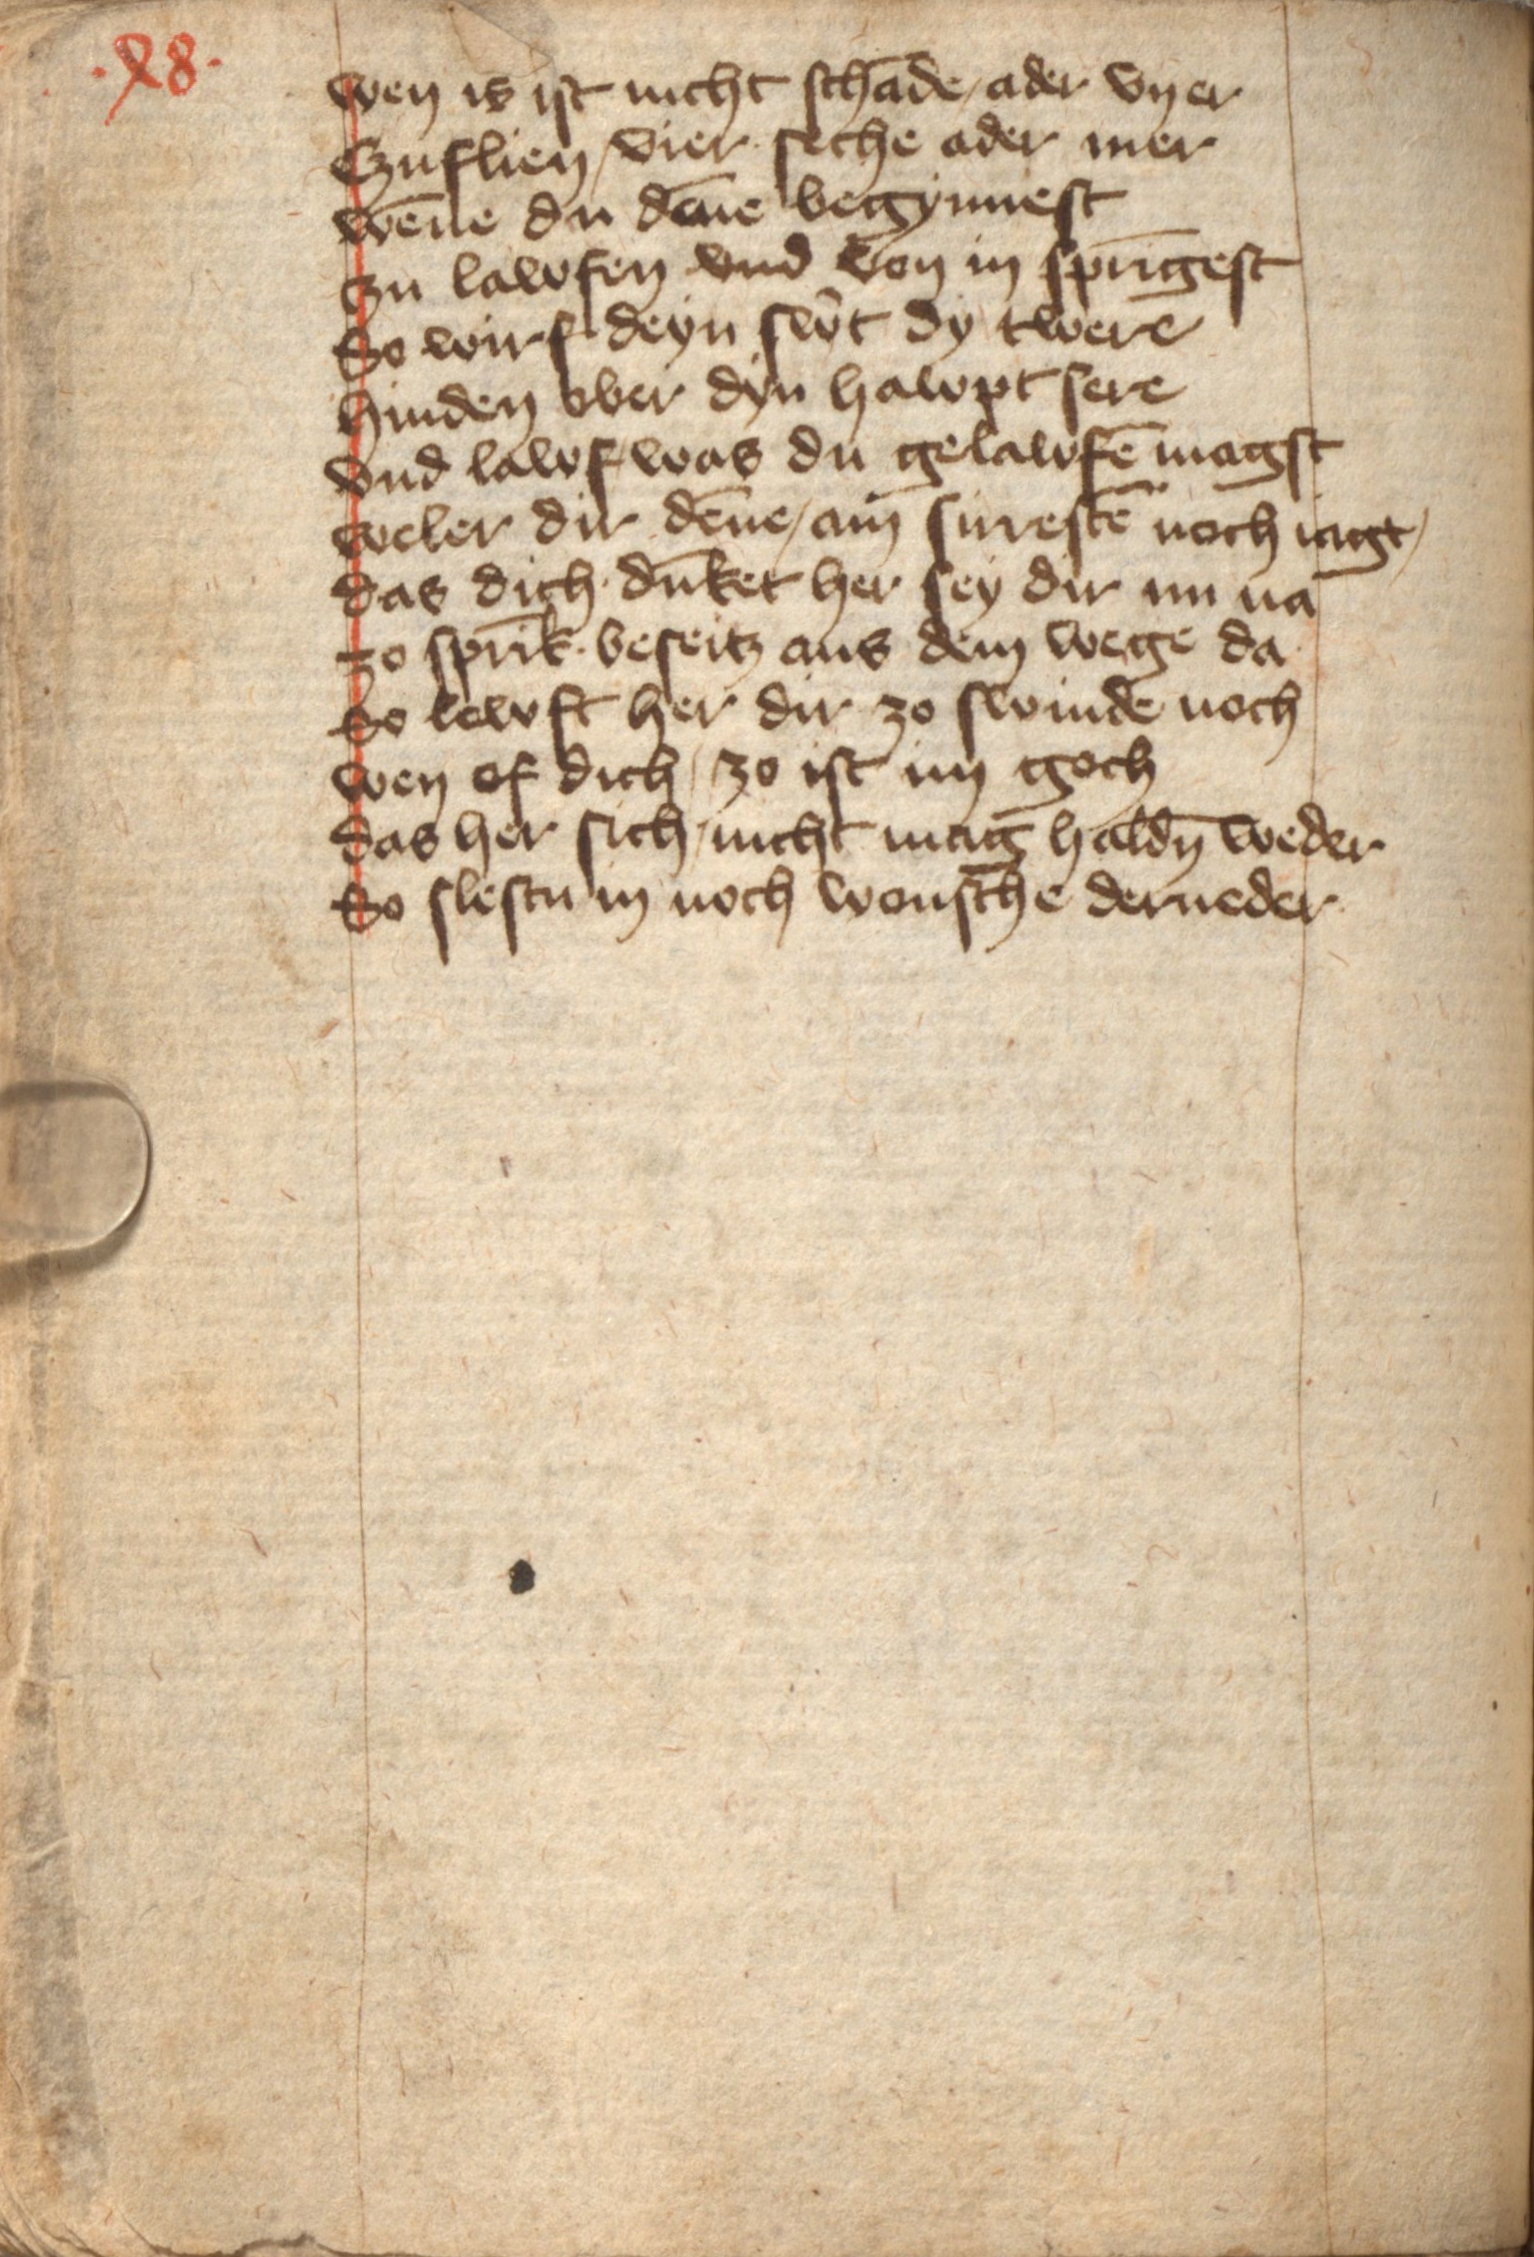 ·48·
wen is ist nicht schāde / ader vner
Czuflien / vier · seche ader mer
wēne du dēne begynnest
zu lawfen vnd von in sprīgest
So wirf deyn swt dy twere
hinden ober dyn hawpt sere
vnd lawf was du gelawfē magst
weler dir dēne / am̄ sirestē noch iagt /
das dich · dūket her sey dir nu na
zo sprīk · beseitz aus dem wege da
So lewft her dir zo swinde noch
wen of dich / zo ist im goch
das her sich / nicht mag haldn̄ weder
So slestu in noch wonsche derneder